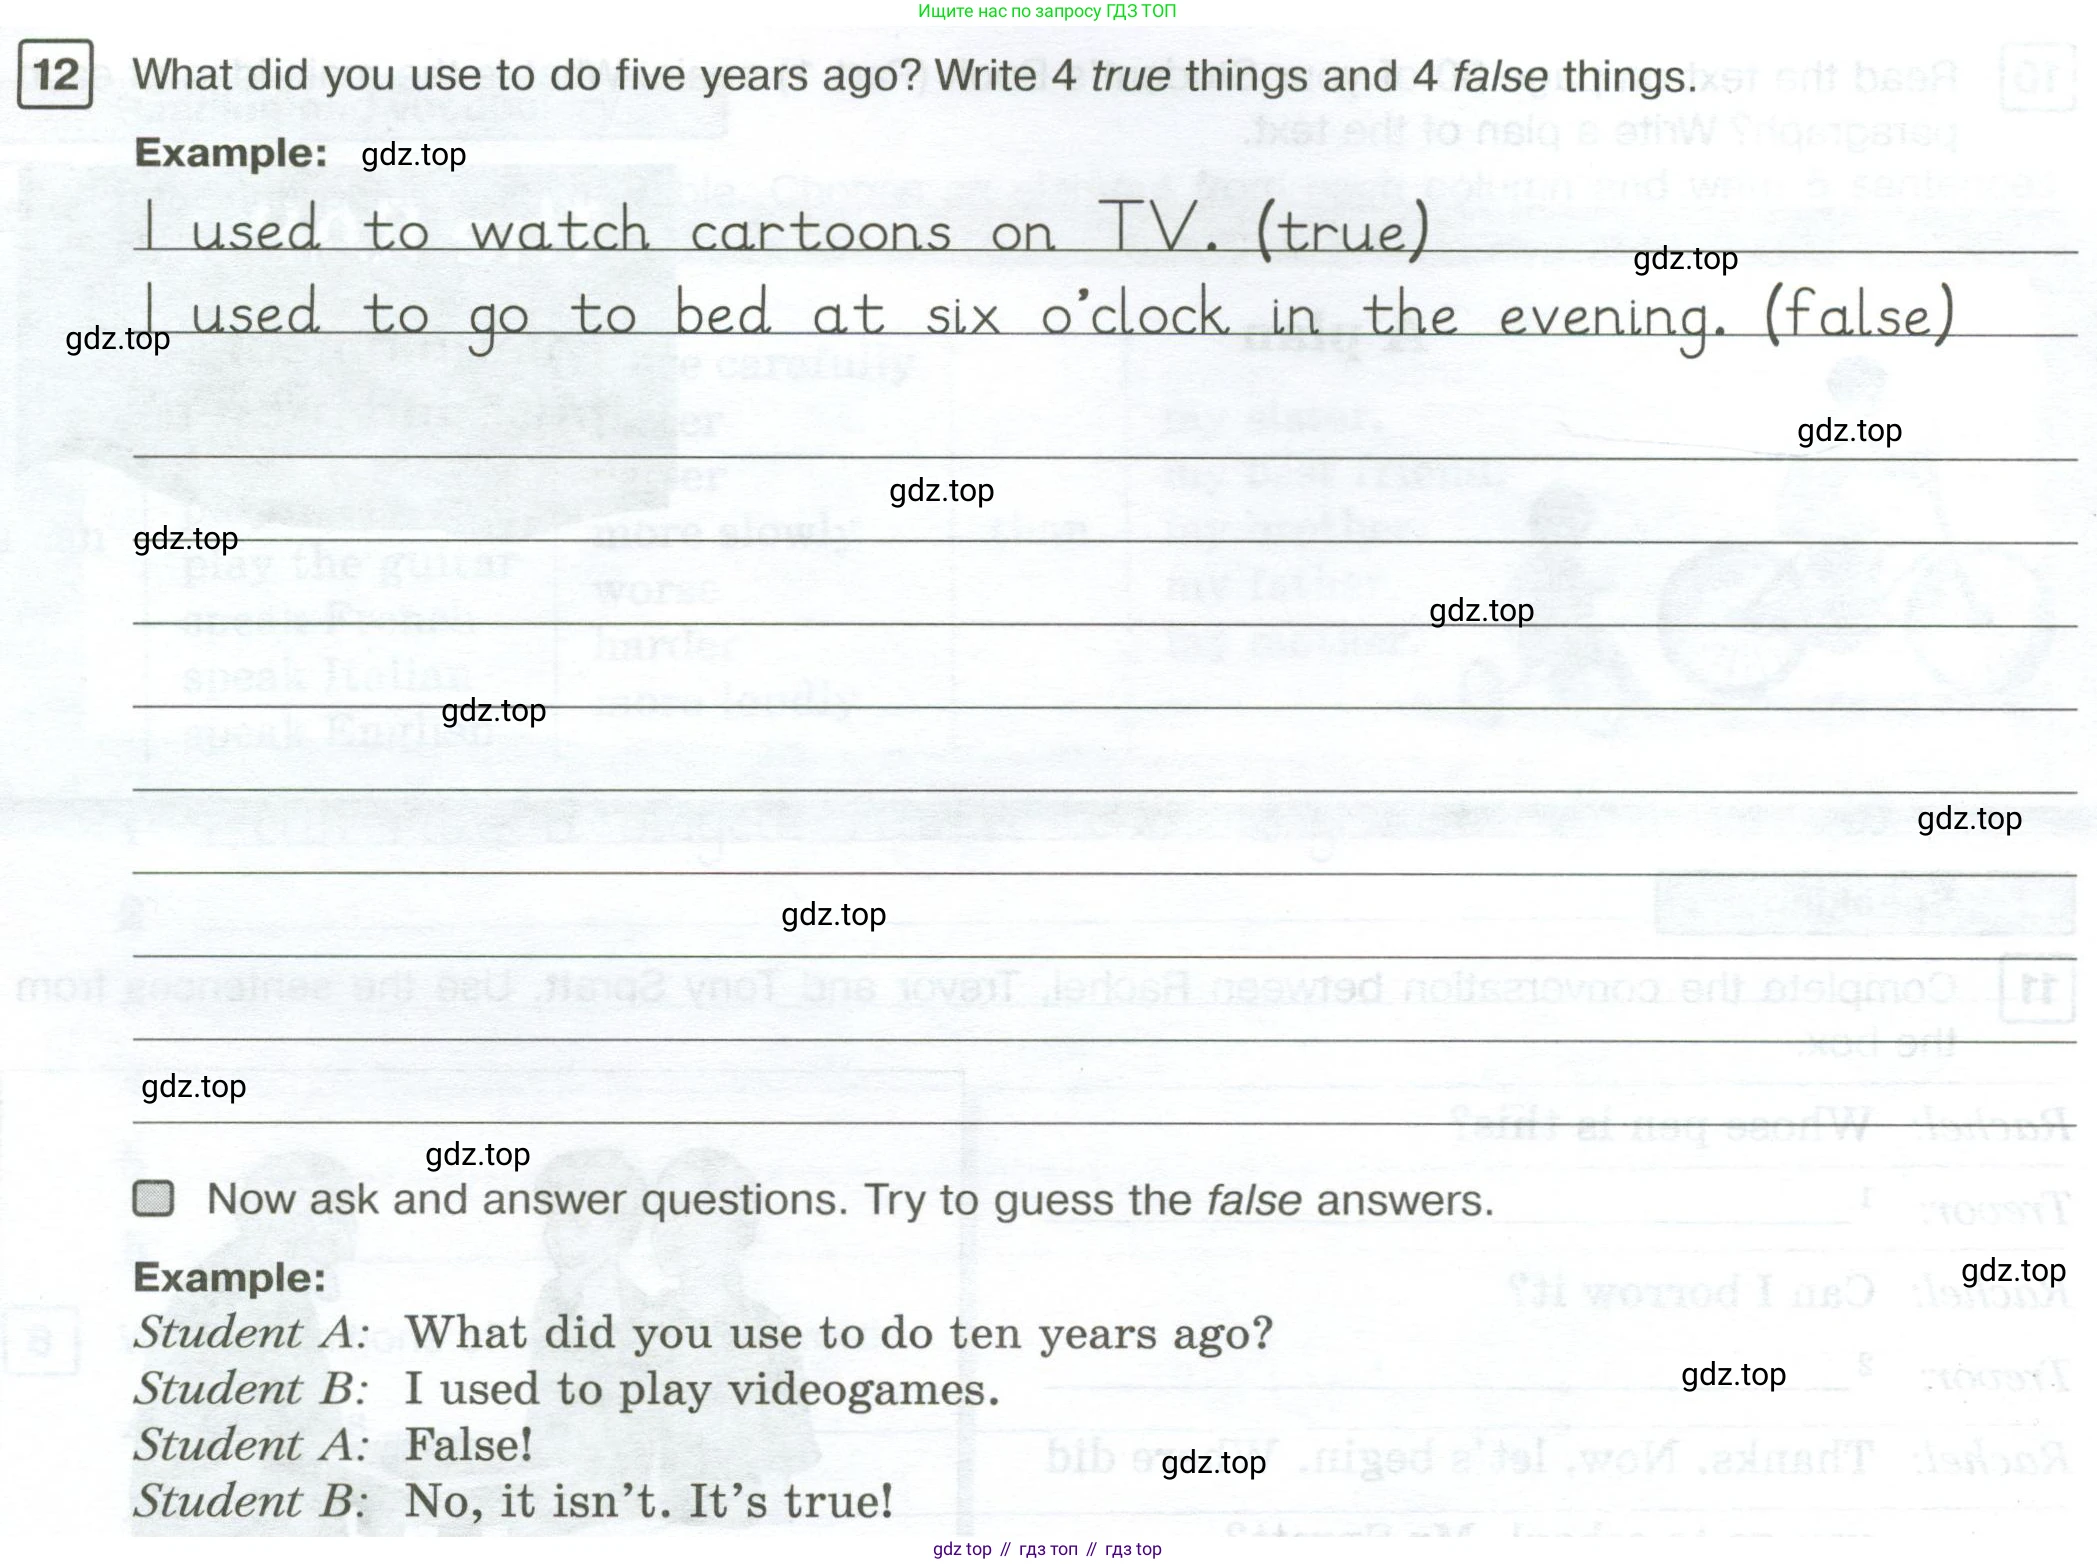 Ищите нас по запросу ГДЗ ТОП
12 What did you use to do five years ago? Write 4 true things and 4 false things.
Example: gdz.top
I used to watch cartoons on TV. (true)
gdz.top
I used to go to bed at six o'clock in the evening. (false)
gdz.top
gdz.top
gdz.top
gdz.top
gdz.top
gdz.top
gdz.top
gdz.top
gdz.top
gdz.top
Now ask and answer questions. Try to guess the false answers.
Example:
gdz.top
Student A: What did you use to do ten years ago?
gdz.top
Student B: I used to play videogames.
Student A: False!
gdz.top
Student B: No, it isn't. It's true!
gdz top // гдз топ // гдз top